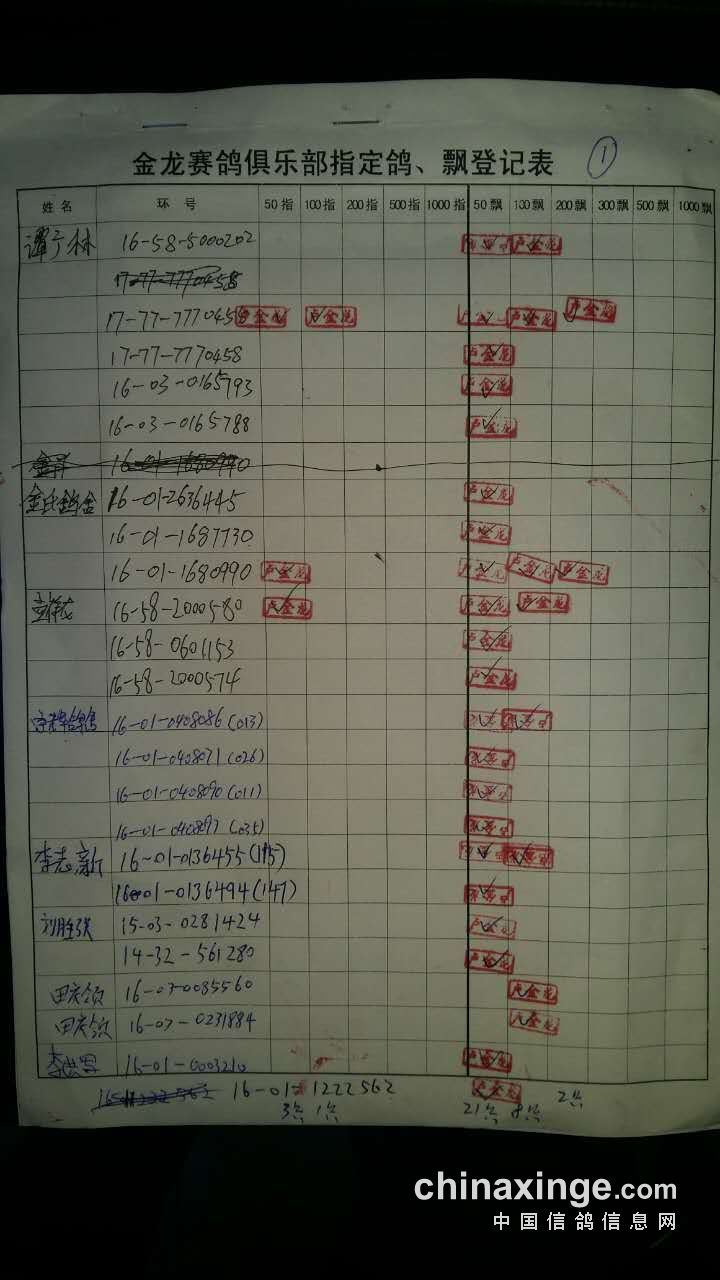 金龙赛鸽俱乐部指定鸽、飘登记表 1
姓名 环号 50指 100指 200指 500指 1000指 50飘 100飘 200飘 300飘 500飘 1000飘
16-58-5000202 卢金龙
17-77-7770458
17-77-777045 卢金龙 卢金龙 卢金龙 卢金龙
17-77-7770458 卢金龙
16-03-0165793 卢金龙
16-03-0165788 卢金龙
16-01-1680990
16-01-2636445 卢金龙
16-01-1687730 卢金龙
16-01-1680990 卢金龙 卢金龙 卢金龙 卢金龙
16-58-2000580 卢金龙 卢金龙 卢金龙
16-58-0601153 卢金龙
16-58-2000574 卢金龙
16-01-0408086(013)
16-01-0408071(026)
16-01-0408090(011)
16-01-0408097(035)
李志新 16-01-0136455(195)
16-01-0136494(147)
刘胜强 15-03-0281424 卢金龙
14-32-561280 卢金龙
田庆领 16-07-0085560 卢金龙
田庆领 16-07-0231884 金龙
16-01-0003210 卢金龙
16-01-1222562
3 1 21 8 2
chinaxinge.com
中国信鸽信息网